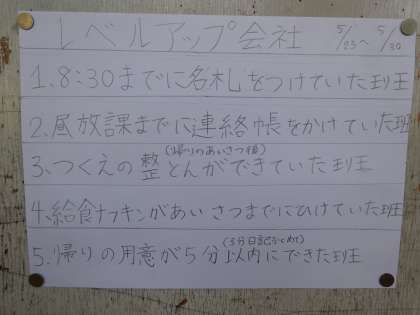 レベルアップ会社 5/23〜5/30
1.8:30までに名札をつけていた班
2.昼放課までに連絡帳をかけていた班
(帰りのあいさつ後)
3.つくえの整とんができていた班
4.給食ナフキンがあいさつまでにひけていた班
(3分日記ふくめて)
5.帰りの用意が5分以内にできた班